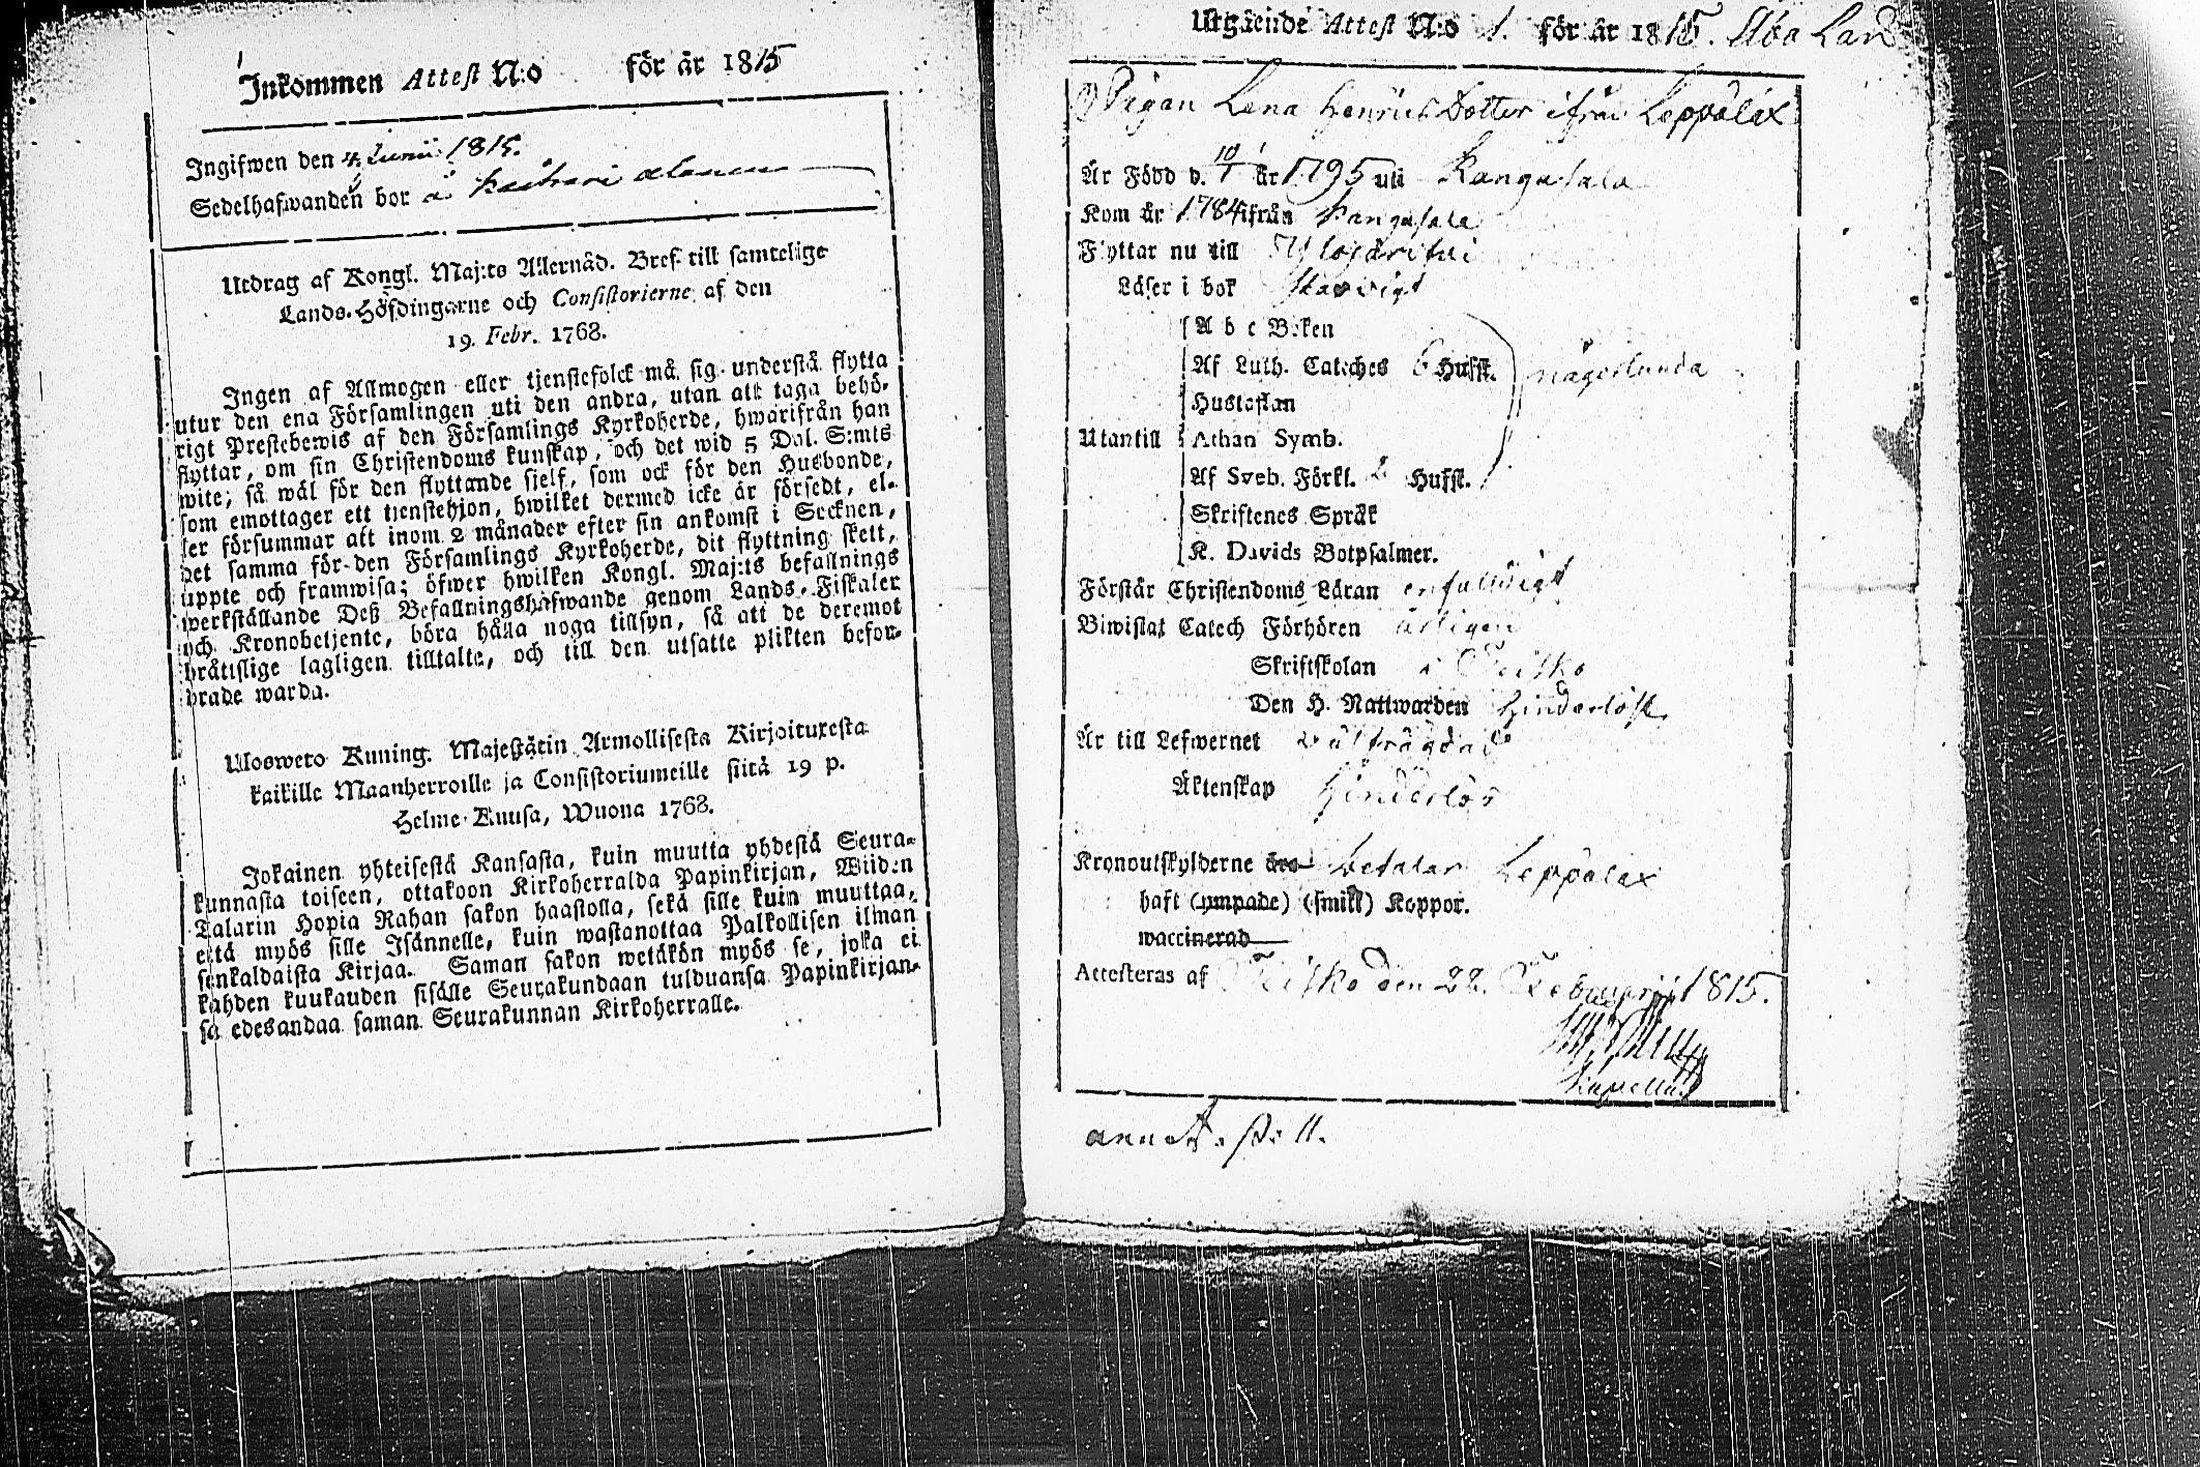 Inkommen Attest N:o för år 1815
Ingifwen den 4 Junii 1815.
Sedelhafwanden bor å
Utdrag af Kongl. Maj:ts Allernåd. Bref till samtelige
Lands-Höfdingarne och Consistorierne af den
19. Febr. 1768.
Ingen af Allmogen eller tjenstefolck må sig understå flytta
utur den ena Församlingen uti den andra, utan att taga behö-
rigt Prestebewis af den Församlings Kyrkoherde, hwarifrån han
flyttar, om sin Christendoms kunskap, och det wid 5 Dal. S:mts
wite; så wäl för den flyttande sjelf, som ock för den Husbonde,
som emottager ett tjenstehjon, hwilket dermed icke är försedt, el-
ler försummar att inom 2 månader efter sin ankomst i Socknen,
det samma för den Församlings Kyrkoherde, dit flyttning skett,
uppte och framwisa; öfwer hwilken Kongl. Maj:ts befallnings
werkställande Deß Befallningshafwande genom Lands-Fiskaler
och Kronobetjente, böra hålla noga tillsyn, så att de deremot
bråtislige lagligen tilltalte, och till den utsatte plikten befor-
drade warda.
Uloswero Kuning. Majestätin Armollisesta Kirjoituxesta
kaikille Maanherroille ja Consistoriumeille siitä 19 p.
Helme-Kuusa, Wuona 1768.
Jokainen yhteisestä Kansasta, kuin muutta yhdestä Seura-
kunnasta toiseen, ottakoon Kirkoherralda Papinkirjan, Wiiden
Talarin Hopia Rahan sakon haastolla, sekä sille kuin muuttaa,
että myös sille Isännelle, kuin wastanottaa Palkollisen ilman
senkaldaista Kirjaa. Saman sakon wetäkön myös se, joka ei
kahden kuukauden sisälle Seurakundaan tulduansa Papinkirjan-
sa edesandaa saman Seurakunnan Kirkoherralle.
Utgående Attest N:o 1. för år 1815. Åbo Län
Pigan Lena Henrics Dotter ifrån Leppälax
Är Född d. 10/1 år 1795 uti Kangasala
Kom år 1784 ifrån Kangasala
Flyttar nu till Ylöjärvi
Läser i bok
A b c Boken
Af Luth. Cateches 6 Hufst. någorlunda
Hustaflan
Utantill Athan Symb.
Af Sveb. Förkl. 2 Hufst.
Skriftenes Språk
K. Davids Botpsalmer.
Förstår Christendoms Läran enfaldigt
Biwistat Catech Förhören årligen
Skriftskolan i Teisko
Den H. Nattwarden hinderlöst
Är till Lefwernet välfrägdad
Äktenskap Hinderlös
Kronoutskylderne äro betalar Leppälax
haft (ympade) (smitt) Koppor.
waccinerad
Attesteras af Teisko den 22. Februarii 1815.
Kapellan